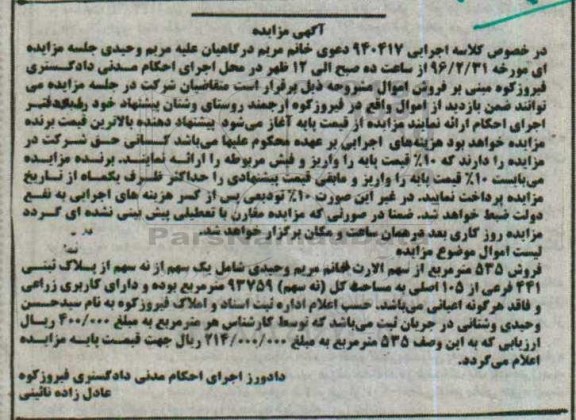 آگهی مزایده
در خصوص کلاسه اجرایی ۹۴۰۴۱۷ دعوی خانم مریم درگاهیان علیه مریم وحیدی جلسه مزایده
ای مورخه ۹۶/۲/۳۱ از ساعت ده صبح الی ۱۲ ظهر در محل اجرای احکام مدنی دادگستری
فیروزکوه مبنی بر فروش اموال مشروحه ذیل برقرار است متقاضیان شرکت در جلسه مزایده می
توانند ضمن بازدید از اموال واقع در فیروزکوه ارجمند روستای وشتان پیشنهاد خود را به دفتر
اجرای احکام ارائه نمایند مزایده از قیمت پایه آغاز می‌شود پیشنهاد دهنده بالاترین قیمت برنده
مزایده خواهد بود هزینه‌های اجرایی بر عهده محکوم علیها می‌باشد کسانی حق شرکت در
مزایده را دارند که ۱۰٪ قیمت پایه را واریز و فیش مربوطه را ارائه نمایند. برنده مزایده
می‌بایست ۱۰٪ قیمت پایه را واریز و مابقی قیمت پیشنهادی را حداکثر ظرف یکماه از تاریخ
مزایده پرداخت نمایید. در غیر این صورت ۱۰٪ تودیعی پس از کسر هزینه های اجرایی به نفع
دولت ضبط خواهد شد. ضمنا در صورتی که مزایده مقارن با تعطیلی پیش بینی نشده ای گردد
مزایده روز کاری بعد در همان ساعت و مکان برگزار خواهد شد.
لیست اموال موضوع مزایده
فروش ۵۳۵ مترمربع از سهم الارث خانم مریم وحیدی شامل یک سهم از نه سهم از پلاک ثبتی
۴۴۱ فرعی از ۱۰۵ اصلی به مساحت کل (نه سهم) ۹۳۷۵۹ مترمربع بوده و دارای کاربری زراعی
و فاقد هرگونه اعیانی می‌باشد. حسب اعلام اداره ثبت اسناد و املاک فیروزکوه به نام سیدحسن
وحیدی وشتانی در جریان ثبت می‌باشد که توسط کارشناس هر مترمربع به مبلغ ۴۰۰/۰۰۰ ریال
ارزیابی که به این وصف ۵۳۵ مترمربع به مبلغ ۲۱۴/۰۰۰/۰۰۰ ریال جهت قیمت پایه مزایده
اعلام می‌گردد.
دادورز اجرای احکام مدنی دادگستری فیروزکوه
عادل زاده نائینی